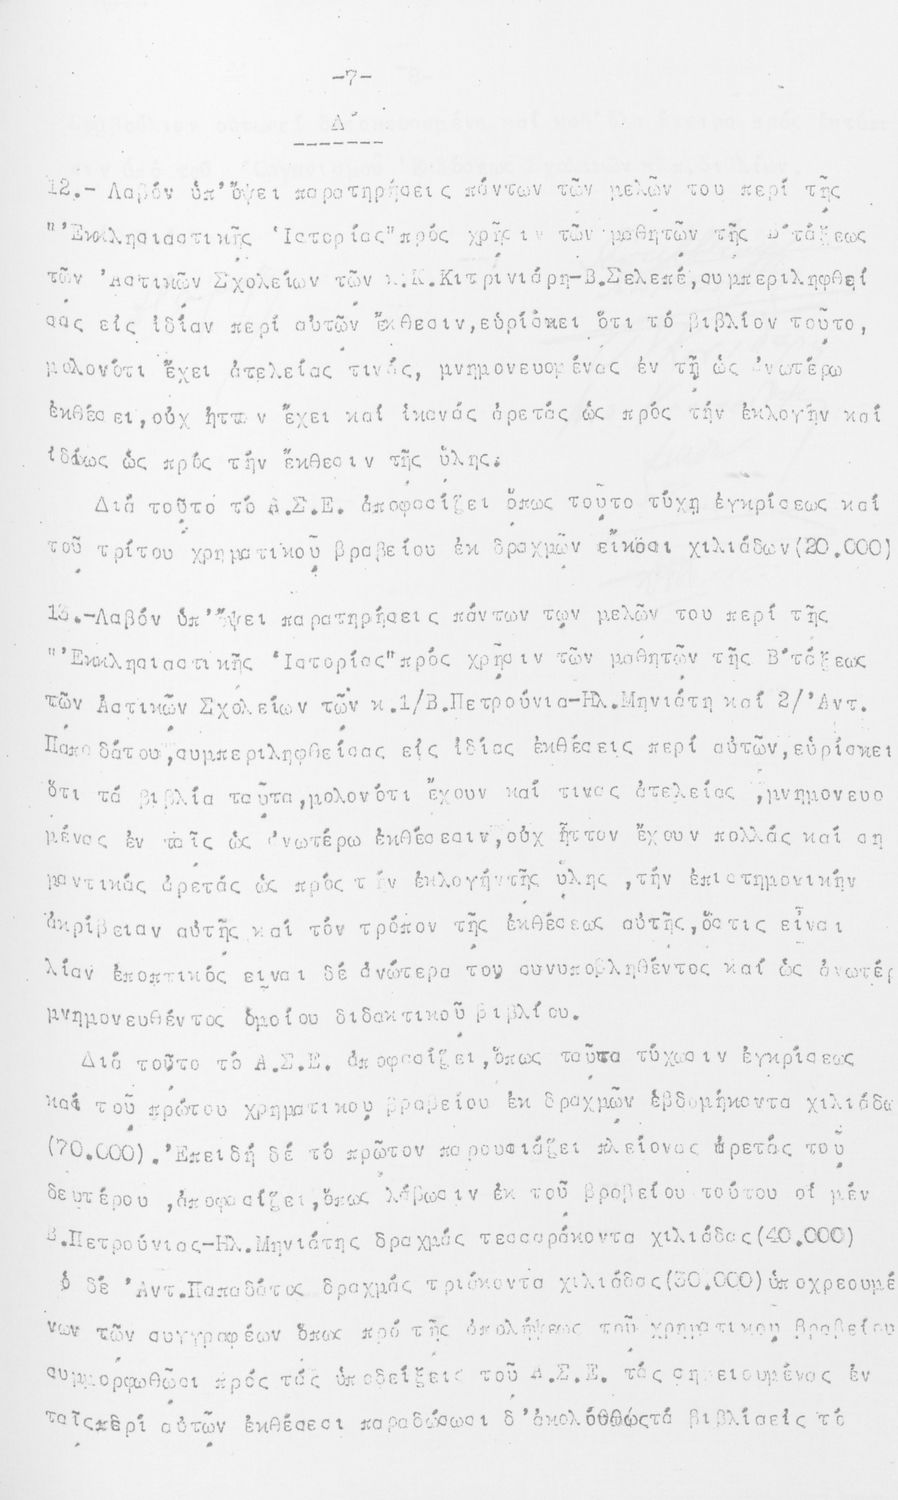 -7-
Δ΄
12.- Λαβόν ὑπ' ὄψει παρατηρήσεις πάντων τῶν μελῶν του περί τῆς
"Ἐκκλησιαστικῆς Ἱστορίας" πρός χρῆσιν τῶν μαθητῶν τῆς Β΄τάξεως
τῶν Ἀστικῶν Σχολείων τῶν κ.Κ.Κιτρινιάρη-Β.Σελεπέ,συμπεριληφθεί
σας είς ἰδίαν περί αὐτῶν ἔκθεσιν,εὑρίσκει ὅτι τό βιβλίον τοῦτο,
μολονότι ἔχει ἀτελείας τινάς, μνημονευομένας ἐν τῇ ὡς ἀνωτέρω
ἐκθέσει,οὐχ ἧττον ἔχει καί ἱκανάς ἀρετάς ὡς πρός τήν ἐκλογήν καί
ἰδίως ὡς πρός τήν ἔκθεσιν τῆς ὕλης.
Διά τοῦτο τό Α.Σ.Ε. ἀποφασίζει ὅπως τοῦτο τύχῃ ἐγκρίσεως καί
τοῦ τρίτου χρηματικοῦ βραβείου ἐκ δραχμῶν εἴκοσι χιλιάδων(20.000)
13.-Λαβόν ὑπ' ὄψει παρατηρήσεις πάντων των μελῶν του περί τῆς
"Ἐκκλησιαστικῆς Ἱστορίας" πρός χρῆσιν τῶν μαθητῶν τῆς Β΄τάξεως
τῶν Αστικῶν Σχολείων τῶν κ.1/Β.Πετρούνια-Ηλ.Μηνιάτη καί 2/Ἀντ.
Παπαδάτου,συμπεριληφθείσας είς ἰδίας ἐκθέσεις περί αὐτῶν,εὑρίσκει
ὅτι τά βιβλία ταῦτα,μολονότι ἔχουν καί τινας ἀτελείας ,μνημονευο
μένας ἐν ταῖς ὡς ἀνωτέρω ἐκθέσεσιν,οὐχ ἧττον ἔχουν πολλάς καί ση
μαντικάς ἀρετάς ὡς πρός τήν ἐκλογήντῆς ὕλης ,τήν ἐπιστημονικήν
ἀκρίβειαν αὐτῆς καί τόν τρόπον τῆς ἐκθέσεως αὐτῆς,ὅστις εἶναι
λίαν ἐποπτικός ειναι δέ ἀνώτερα του συνυποβληθέντος καί ὡς ἀνωτέρ
μνημονευθέντος ὁμοίου διδακτικοῦ βιβλίου.
Διά τοῦτο τό Α.Σ.Ε. ἀποφασίζει,ὅπως ταῦτα τύχωσιν ἐγκρίσεως
καί τοῦ πρώτου χρηματικου βραβείου ἐκ δραχμῶν ἑβδομήκοντα χιλιάδω
(70.000).Ἐπειδή δέ τό πρῶτον παρουσιάζει πλείονας ἀρετάς τοῦ
δευτέρου ,ἀποφασίζει,ὅπως λάβωσιν ἐκ τοῦ βραβείου τούτου οἱ μέν
Β.Πετρούνιας-Ηλ.Μηνιάτης δραχμάς τεσσαράκοντα χιλιάδας(40.000)
ὁ δέ Ἀντ.Παπαδάτος δραχμάς τριάκοντα χιλιάδας(30.000)ὑποχρεουμέ
νων τῶν συγγραφέων ὅπως πρό τῆς ἀπολήψεως τοῦ χρηματικου βραβείου
συμμορφωθῶσι πρός τάς ὑποδείξεις τοῦ Α.Σ.Ε. τάς σημειουμένας ἐν
ταῖςπερί αὐτῶν ἐκθέσεσι παραδώσωσι δ'ἀκολούθωςτά βιβλίαείς τό